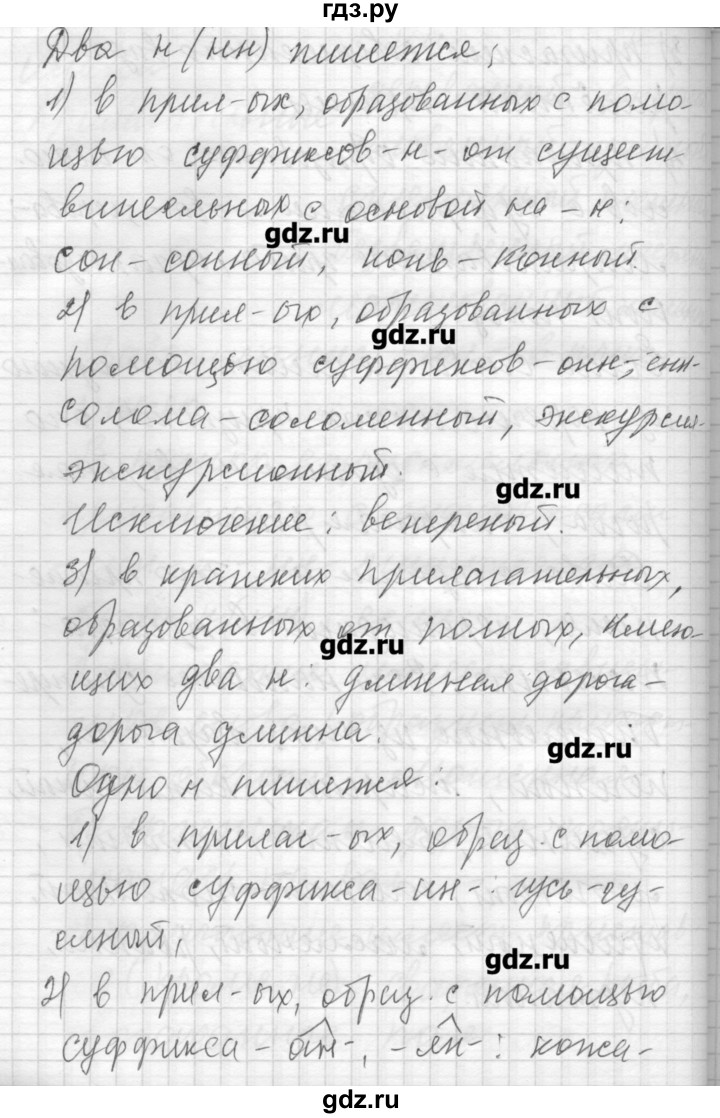 гдз.ру
Два н (нн) пишется:
1) в прил-ых, образованных с помо-
щью суффиксов -н- от сущест-
вительных с основой на -н:
gdz.ru
сон - сонный, конь - конный.
2) в прил-ых, образованных с
gdz.ru
помощью суффиксов -онн-, -енн-
солома - соломенный, экскурсия-
экскурсионный.
gdz.ru
Исключение: ветреный.
3) в кратких прилагательных,
образованных от полных, имею-
gdz.ru
щих два н: длинная дорога -
дорога длинна.
gdz.ru
Одно н пишется:
1) в прилаг-ых, образ. с помо-
щью суффикса -ин-: гусь - гу-
синый,
gdz.ru
2) в прил-ых, образ. с помощью
суффикса -ан-, -ян-: кожа-
gdz.ru